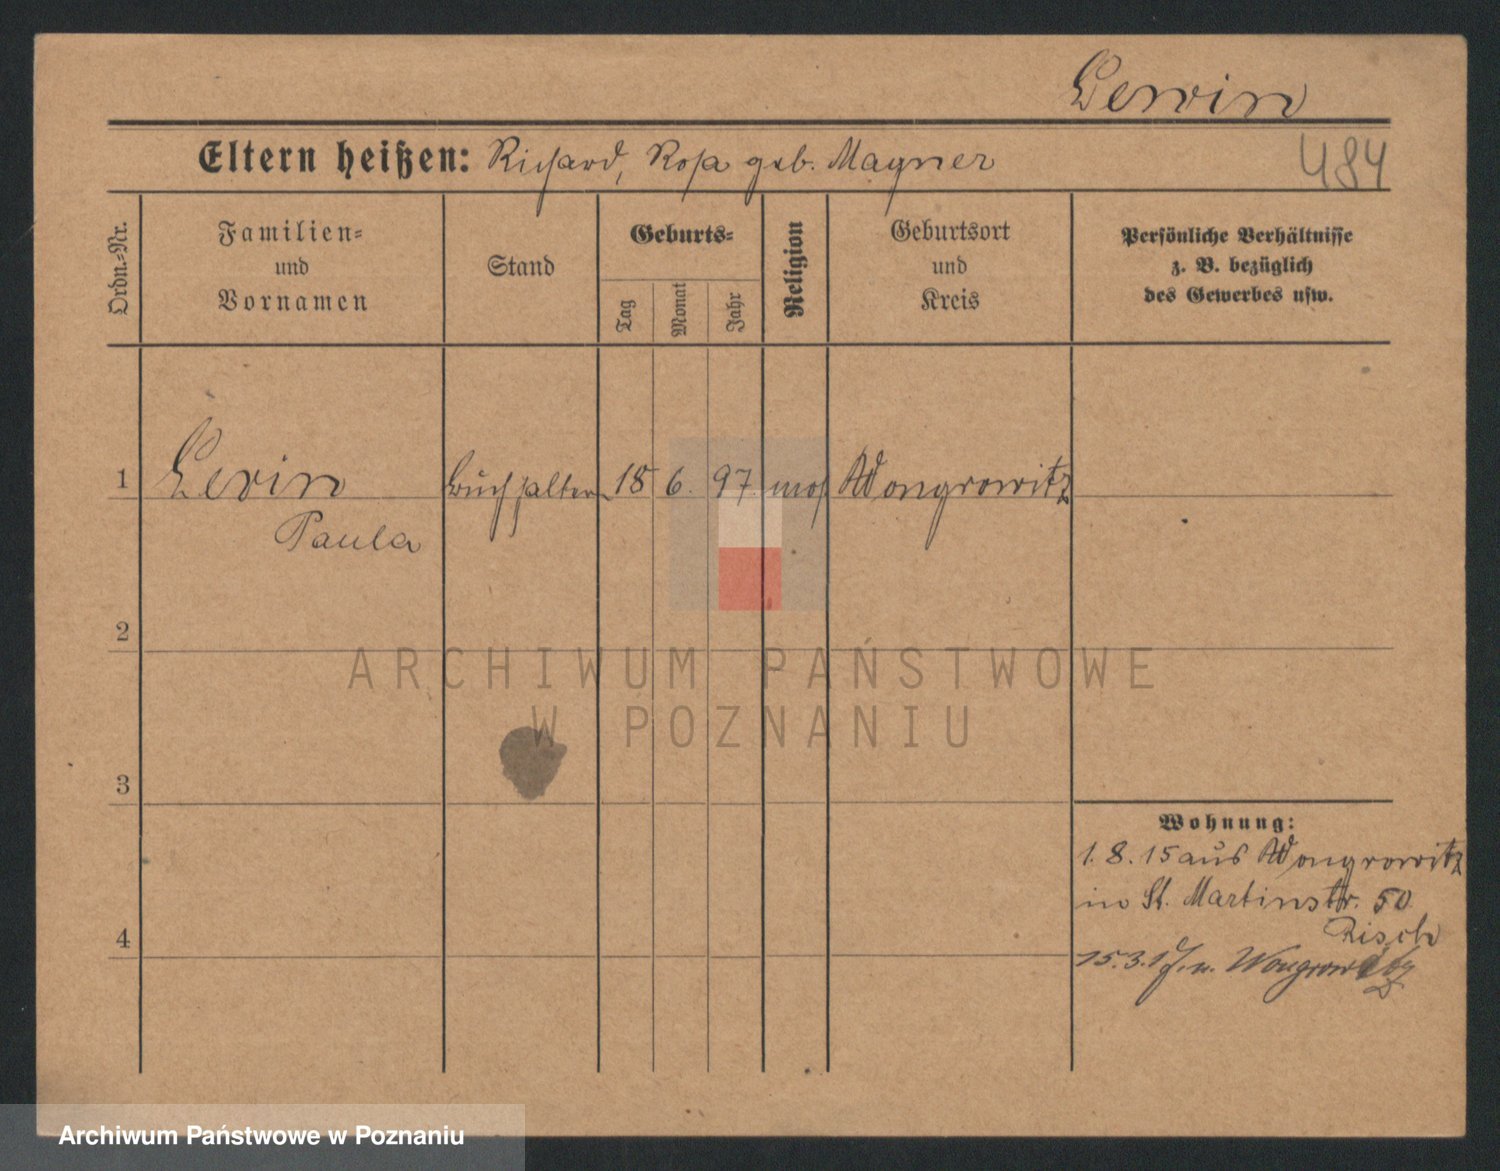 Lewin
Eltern heißen: Richard, Rosa geb. Magner
484
Ordn.-Nr.
Familien- und Vornamen
Stand
Geburts-
Tag
Monat
Jahr
Religion
Geburtsort und Kreis
Persönliche Verhältnisse
z. B. bezüglich
des Gewerbes usw.
1 Lewin Buchhalterin 18 6. 97. mos Wongrowitz
Paula
2
ARCHIWUM PAŃSTWOWE
W POZNANIU
3
Wohnung:
1. 8. 15 aus Wongrowitz
in St. Martinstr. 50
Risch
4
15.3.17. n. Wongrowitz
Archiwum Państwowe w Poznaniu